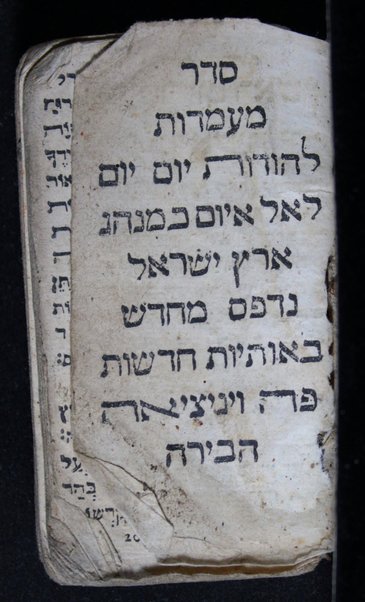 סדר
מעמדות
להודות יום יום
לאל איום כמנהג
ארץ ישראל
נדפס מחדש
באותיות חדשות
פה ויניציאה
הבירה